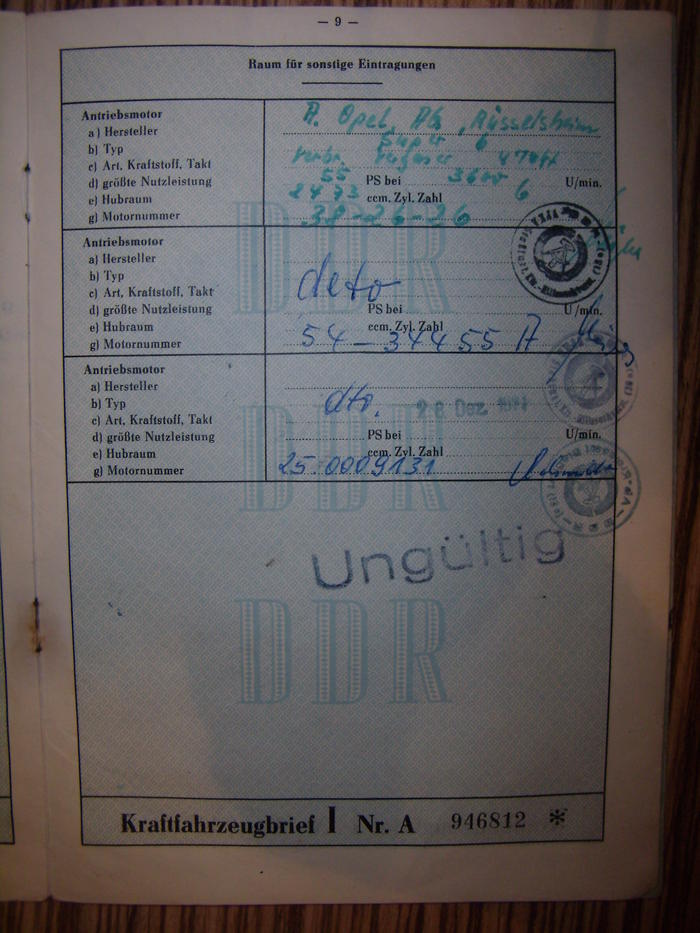 — 9 —
Raum für sonstige Eintragungen
Antriebsmotor
a) Hersteller A. Opel, AG, Rüsselsheim
b) Typ Super 6
c) Art, Kraftstoff, Takt 4 Takt
d) größte Nutzleistung 55 PS bei 3600 U/min.
e) Hubraum 2473 ccm. Zyl. Zahl 6
g) Motornummer 38-26-26
Antriebsmotor
a) Hersteller
b) Typ
c) Art, Kraftstoff, Takt deto
d) größte Nutzleistung PS bei U/min.
e) Hubraum ccm. Zyl. Zahl
g) Motornummer 54-34455 A
Antriebsmotor
a) Hersteller
b) Typ dto. 28 Dez.
c) Art, Kraftstoff, Takt
d) größte Nutzleistung PS bei U/min.
e) Hubraum ccm. Zyl. Zahl
g) Motornummer 25.0009131
Ungültig
DDR
DDR
DDR
Kraftfahrzeugbrief I Nr. A 946812 *